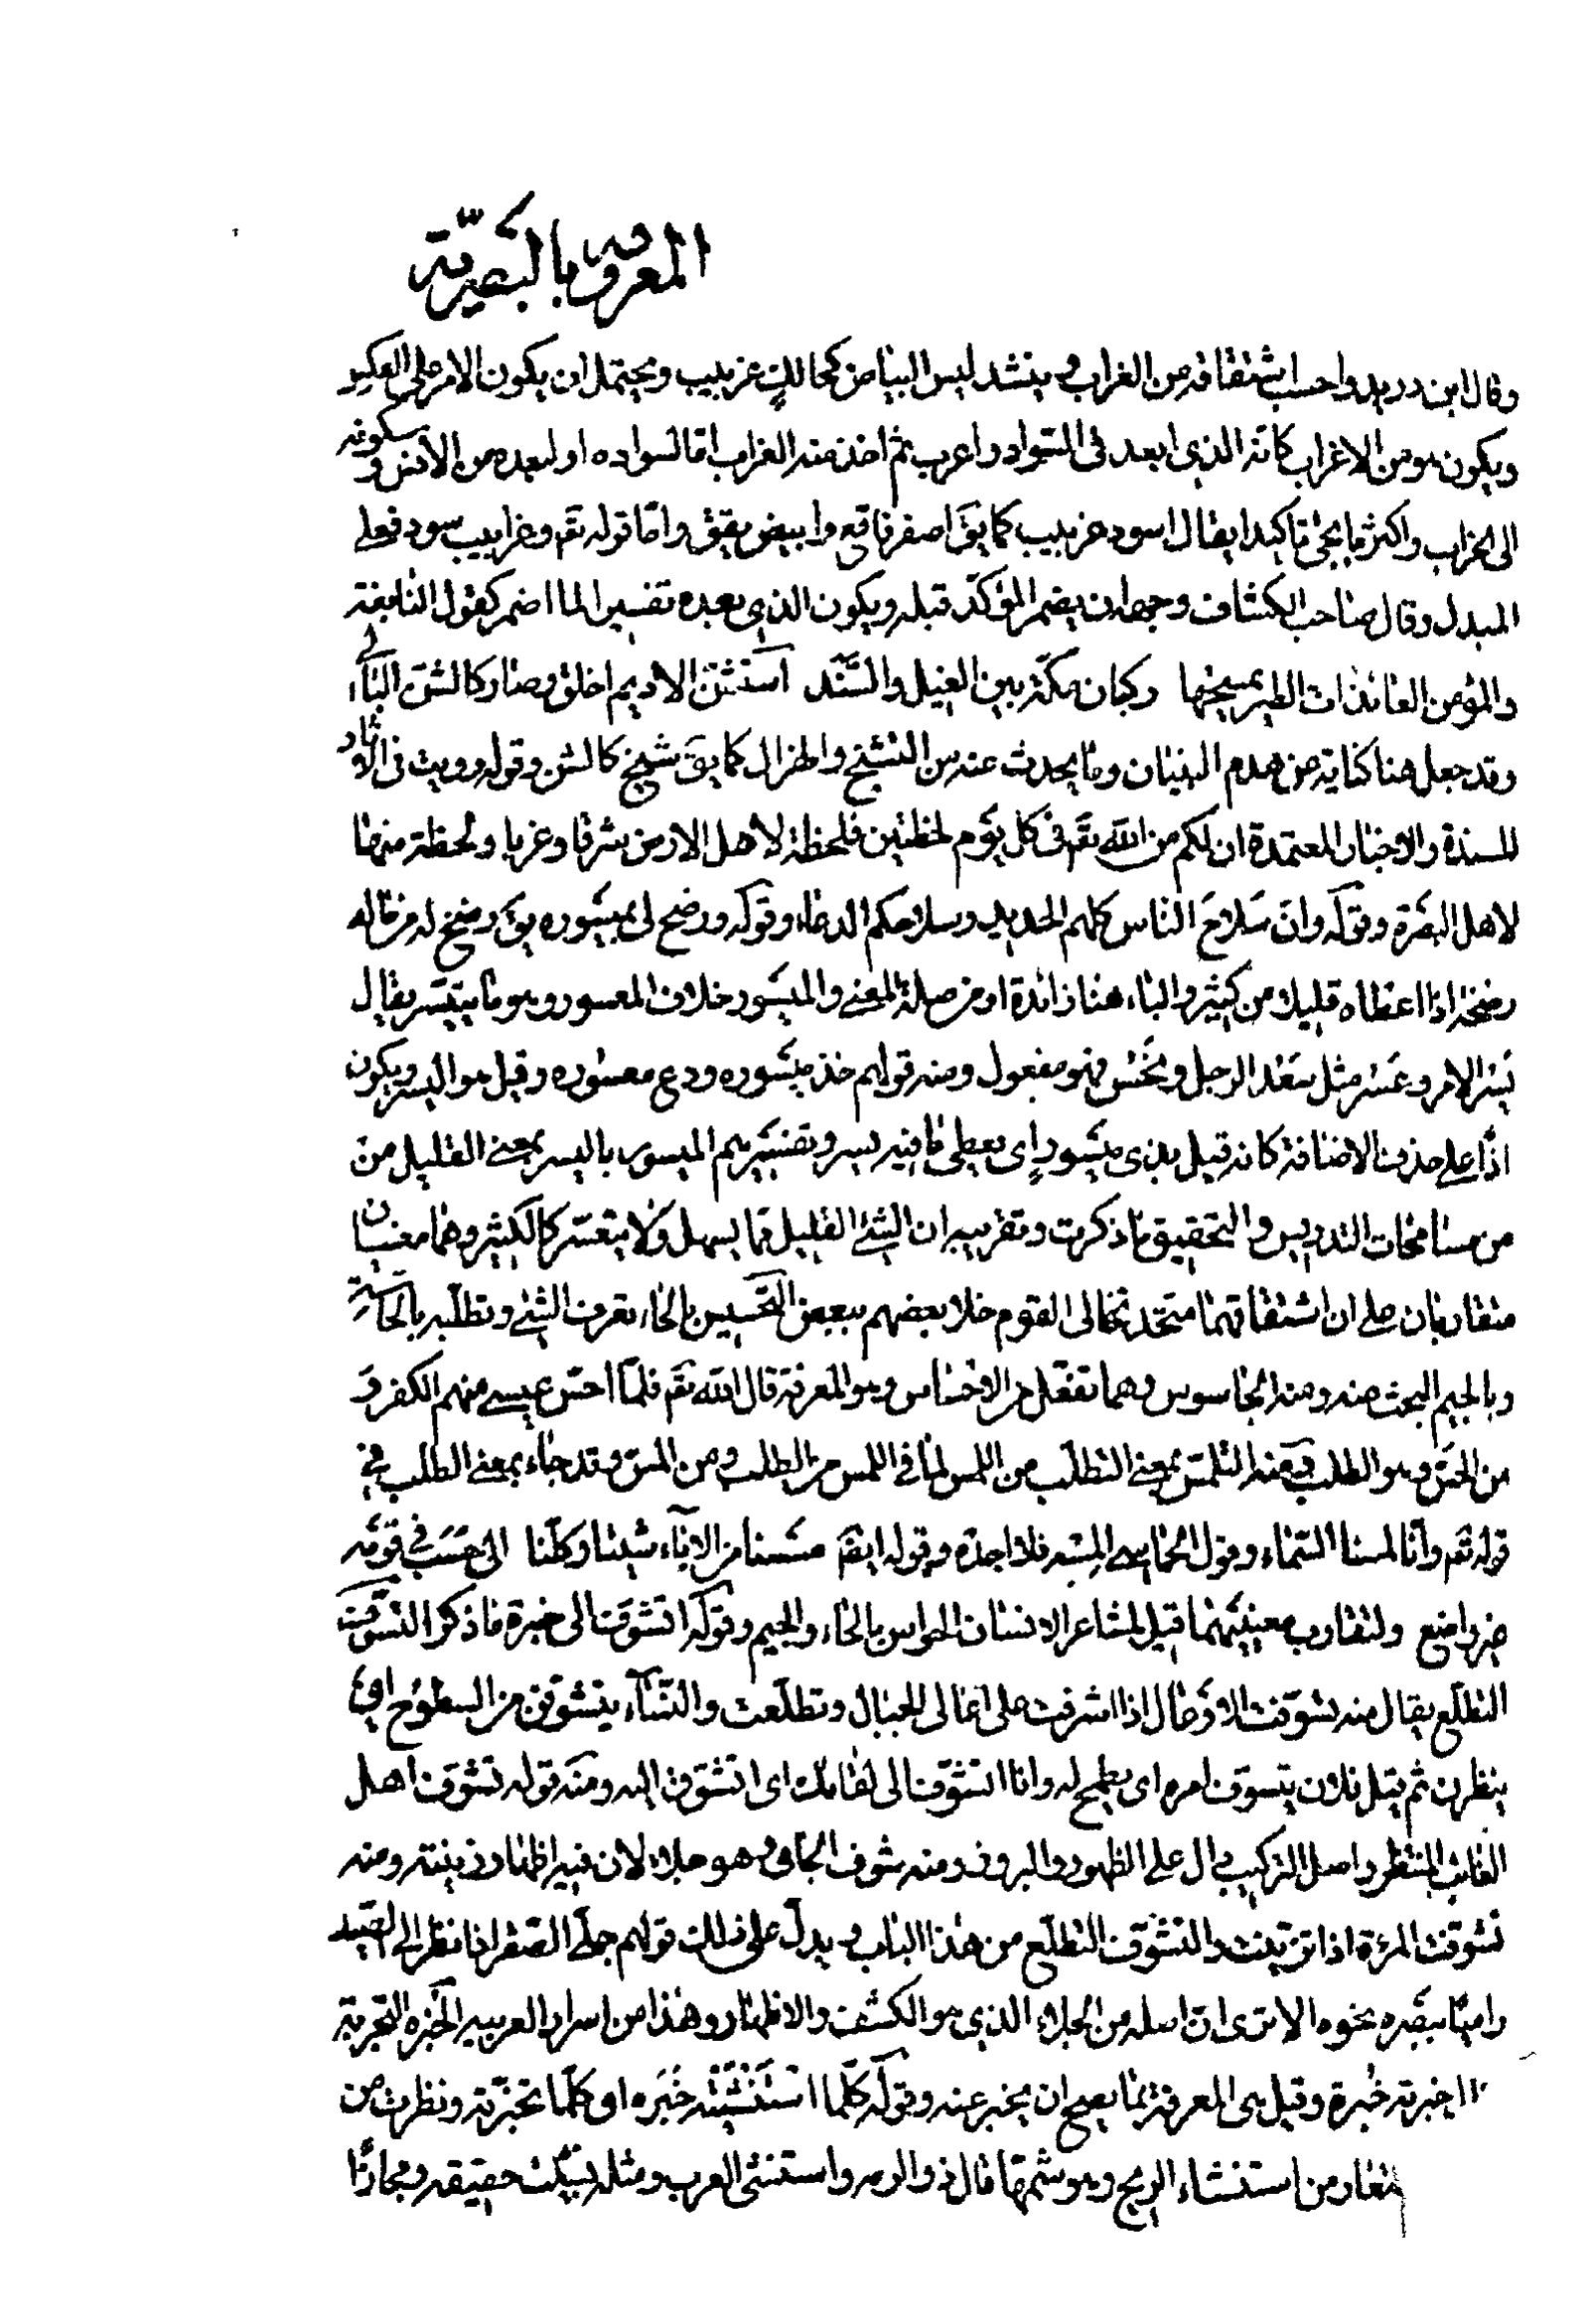 المعروفة بالبصريّة
وقال ابن دريد واحسب اشتقاقه من الغراب وينشد ليس البياض كحالك غربيب ويحتمل ان يكون الامر على العكس
ويكون هو من الاغراب كانه الذي ابعد في السواد واغرب ثم اخذ منه الغراب امّا لسواده او لبعده من الانس وسكونه
الى الخراب واكثر ما يجئ تاكيدا يقال اسود غربيب كما يقَ اصفر فاقع وابيض يقق وامّا قوله تعَ وغرابيب سود فعلى
المبدل وقال صاحب الكشاف وجهه ان يضمر المؤكّد قبله ويكون الذي بعده تفسيرا لما اضمر كقول النابغة
والمؤمن العائذات الطير يمسحها ركبان مكّة بين الغيل والسَّنَد استشنّ الاديم اخلق وصار كالشنّ البالي
وقد جعل هنا كناية عن هدم البنيان وما يحدث عنه من التشنّج والهزال كما يقَ شيخ كالشن وقوله ورويت في الآثار
المسندة والاخبار المعتمدة ان لكم من الله تعَ في كل يوم لحظتين فلحظة لاهل الارض شرقا وغربا ولحظة منها
لاهل البصرة وقوله وانّ سَلاحَ الناس كلهم الحديد وسلاحكم الدعاء وقوله ورضخ لي بميسُوره يقَ رضخ له من ماله
رضخة اذا اعطاه قليلا من كثير والباء هنا زائدة او من صلة المعنى والميسور خلاف المعسور وهو ما يتيسّر يقال
يُسِرَ الامر وعُسِرَ مثل سَعُد الرجل ونحُس فهو مفعول ومنه قولهم خذ ميسُوره ودع معسُوره وقيل هو اليسر ويكون
اذًا على حذف الاضافة كانه قيل بذي ميسُورٍ اي يعطي ما فيه يسر وتفسيرهم الميسور باليسر بمعنى القليل من
من مسامحات التدريس والتحقيق ما ذكرت وتقريبه ان الشئ القليل مما يسهل ولا يتعسّر كالكثير وهما معنيان
متقاربان على ان اشتقاقهما متّحد نخا الى القوم خلا بعضهم ببعض التحسّس بالحاء تعرف الشئ وتطلّبه بالحاسّة
وبالجيم البحث عنه ومنه الجاسوس وهما تفعّل من الاحساس وهو المعرفة قال الله تعَ فلمّا احسّ عيسى منهم الكفر وَ
من الجسّ وهو الطلب ومنه التلمّس بمعنى التطلّب من اللمس لما في اللمس من الطلب ومن المسّ وقد جاء بمعنى الطلب في
قوله تعَ وانّا لمسنا السّماء وقول الحماسي المسه فلا اجدَه وقوله ايضَ مَسَسنا من الآباء شيئا وكلّنا الى حَسَب في قومِه
غير واضع ولتقارب معنييهما قيل لمشاعر الانسان الحواس بالحاء والجيم وقوله اتشوّف الى خبرة ما ذكر التشوّف
التطلّع يقال منه تشوّفت الاوعال اذا اشرفت على اعالي الجبال وتطلّعت والنّساء يتشوّفن من السطوح اي
ينظرن ثم قيل فلان يتسوّف امره اي يطمح له وانا اتشوّف الى لقائك اي اتشوّف اليه ومنه قوله تشوّف اهل
الغائب المنتظر واصل التركيب دال على الظهور والبروز ومنه شوف الحلي وهو جلاء لان فيه اظهار زينته ومنه
تشوّفت المرءة اذا تزيّنت والتشوّف التطلّع من هذا الباب ويدلّ على ذلك قولهم جلّى الصقر اذا نظر الى الصّيد
راميًا ببصره نحوه الا ترى ان اصله من الجلاء الذي هو الكشف والاظهار وهذا من اسرار العربيه الخبرة التجربة
اخبرته خُبرة وقيل هي المعرفة بما يصح ان يخبر عنه وقوله كلّما استَنشَيتُه خَبَره اي كلّما تخبّرته ونظرت من
مستعار من استنشاء الريح وهو شمّها قال ذو الرمه واستنشى الغرب ومثله يبكت حقيقه ومجازًا